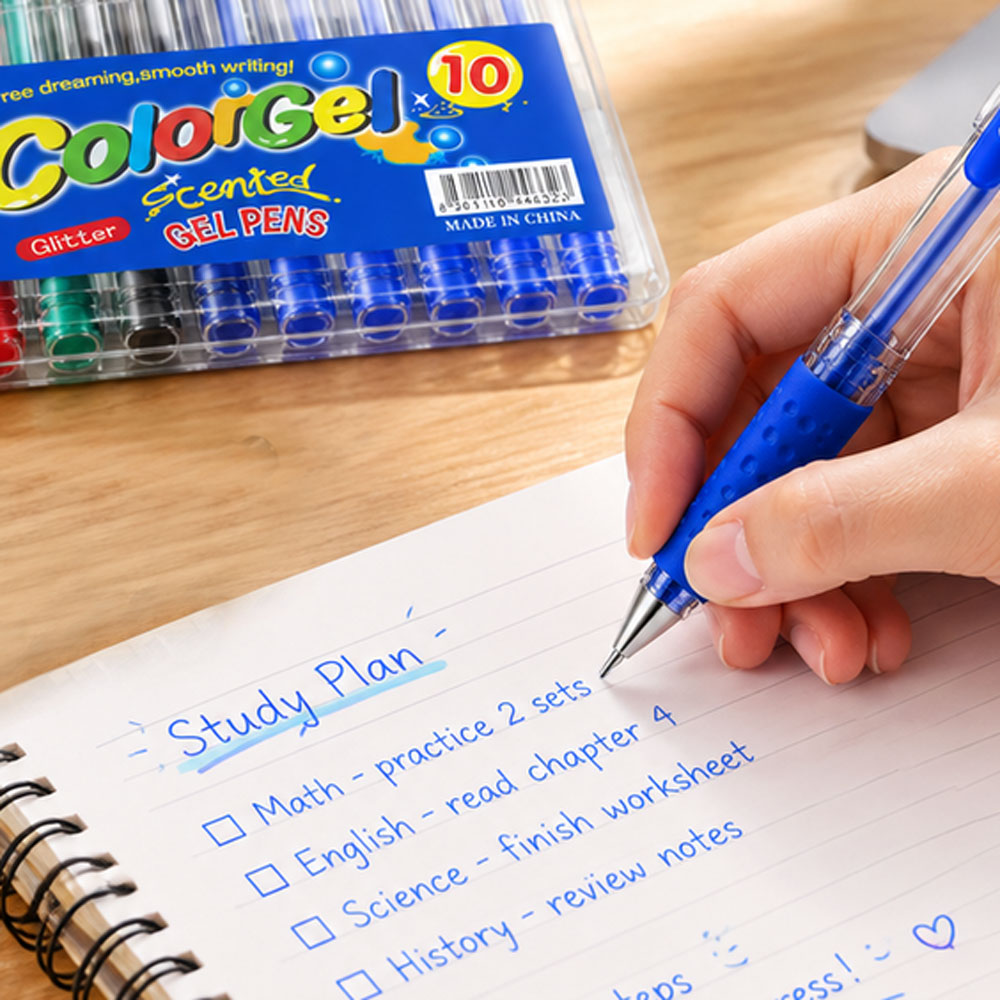 ree dreaming,smooth writing!
ColorGel
10
Scented
GEL PENS
Glitter
MADE IN CHINA
Study Plan
Math - practice 2 sets
English - read chapter 4
Science - finish worksheet
History - review notes
teps
ess!